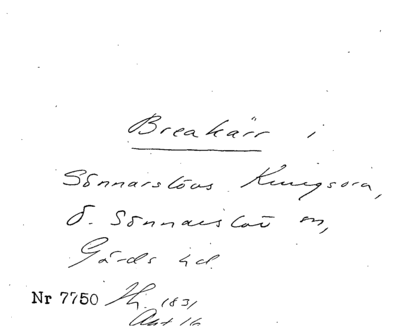 Breakärr i
Sönnarslövs Kungsora,
Ö. Sönnarslöv sn,
Gärds hd.
Nr 7750 Th. 1831
Akt 16